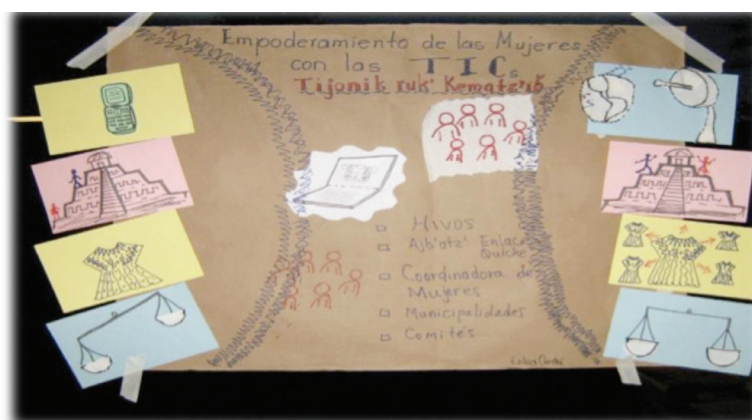 Empoderamiento de las Mujeres
con las TICs
Tijonik ruk' Kematz'ib
HIVOS
Ajb'otz' Enlace
Quiché
Coordinadora de
Mujeres
Municipalidades
Comités